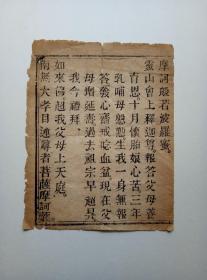 摩訶般若波羅蜜
靈山會上釋迦尊報答父母養
育恩十月懷胎娘心苦三年
乳哺母慇懃生我一身無報
答發心齋戒吃血盆現在父
母增延壽過去親宗早超昇
我今禮拜
如來佛超我父母上天庭
南無大孝目連尊者菩薩摩訶薩